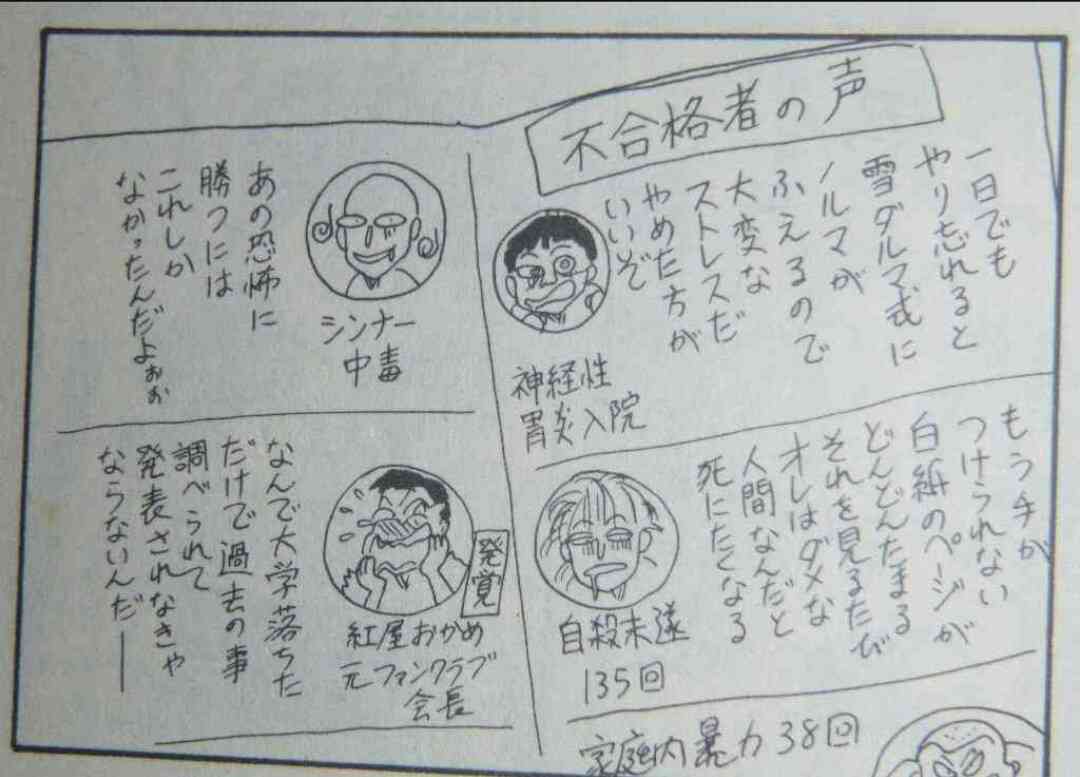 不合格者の声
一日でも
やり忘れると
雪ダルマ式に
ノルマが
ふえるので
大変な
ストレスだ
やめた方が
いいぞ
神経性
胃炎入院
もうチカ
つけられない
白紙のページが
どんどんたまる
それを見るたび
オレはダメな
人間なんだと
死にたくなる
自殺未遂
135回
家庭内暴力38回
あの恐怖に
勝つには
これしか
なかったんだよぉぉ
シンナー
中毒
なんで大学落ちた
だけで過去の事
調べられて
発表されなきゃ
ならないんだ――
発覚
紅屋おかめ
元ファンクラブ
会長